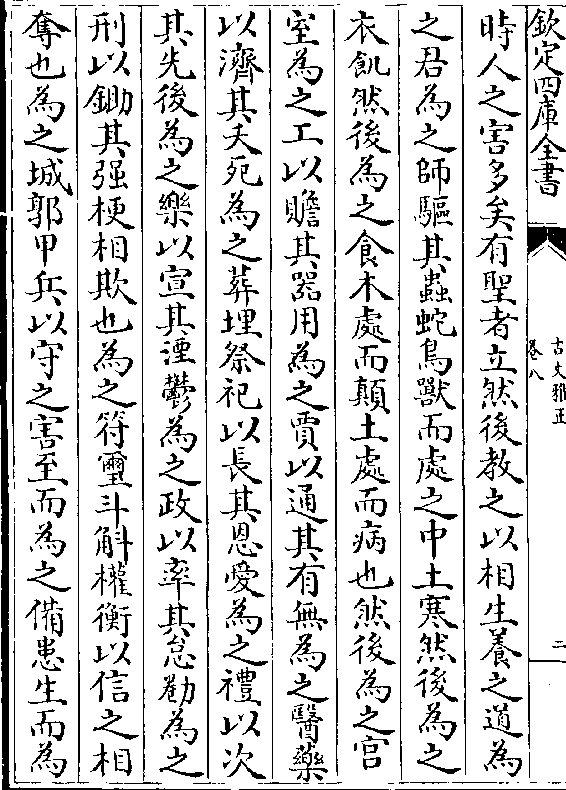 欽定四庫全書
古文雅正
卷八
二
時人之害多矣有聖者立然後教之以相生養之道為
之君為之師驅其蟲蛇鳥獸而處之中土寒然後為之
衣飢然後為之食木處而顛土處而病也然後為之宮
室為之工以贍其器用為之賈以通其有無為之醫藥
以濟其夭死為之葬埋祭祀以長其恩愛為之禮以次
其先後為之樂以宣其湮鬱為之政以率其怠勌為之
刑以鋤其强梗相欺也為之符璽斗斛權衡以信之相
奪也為之城郭甲兵以守之害至而為之備患生而為